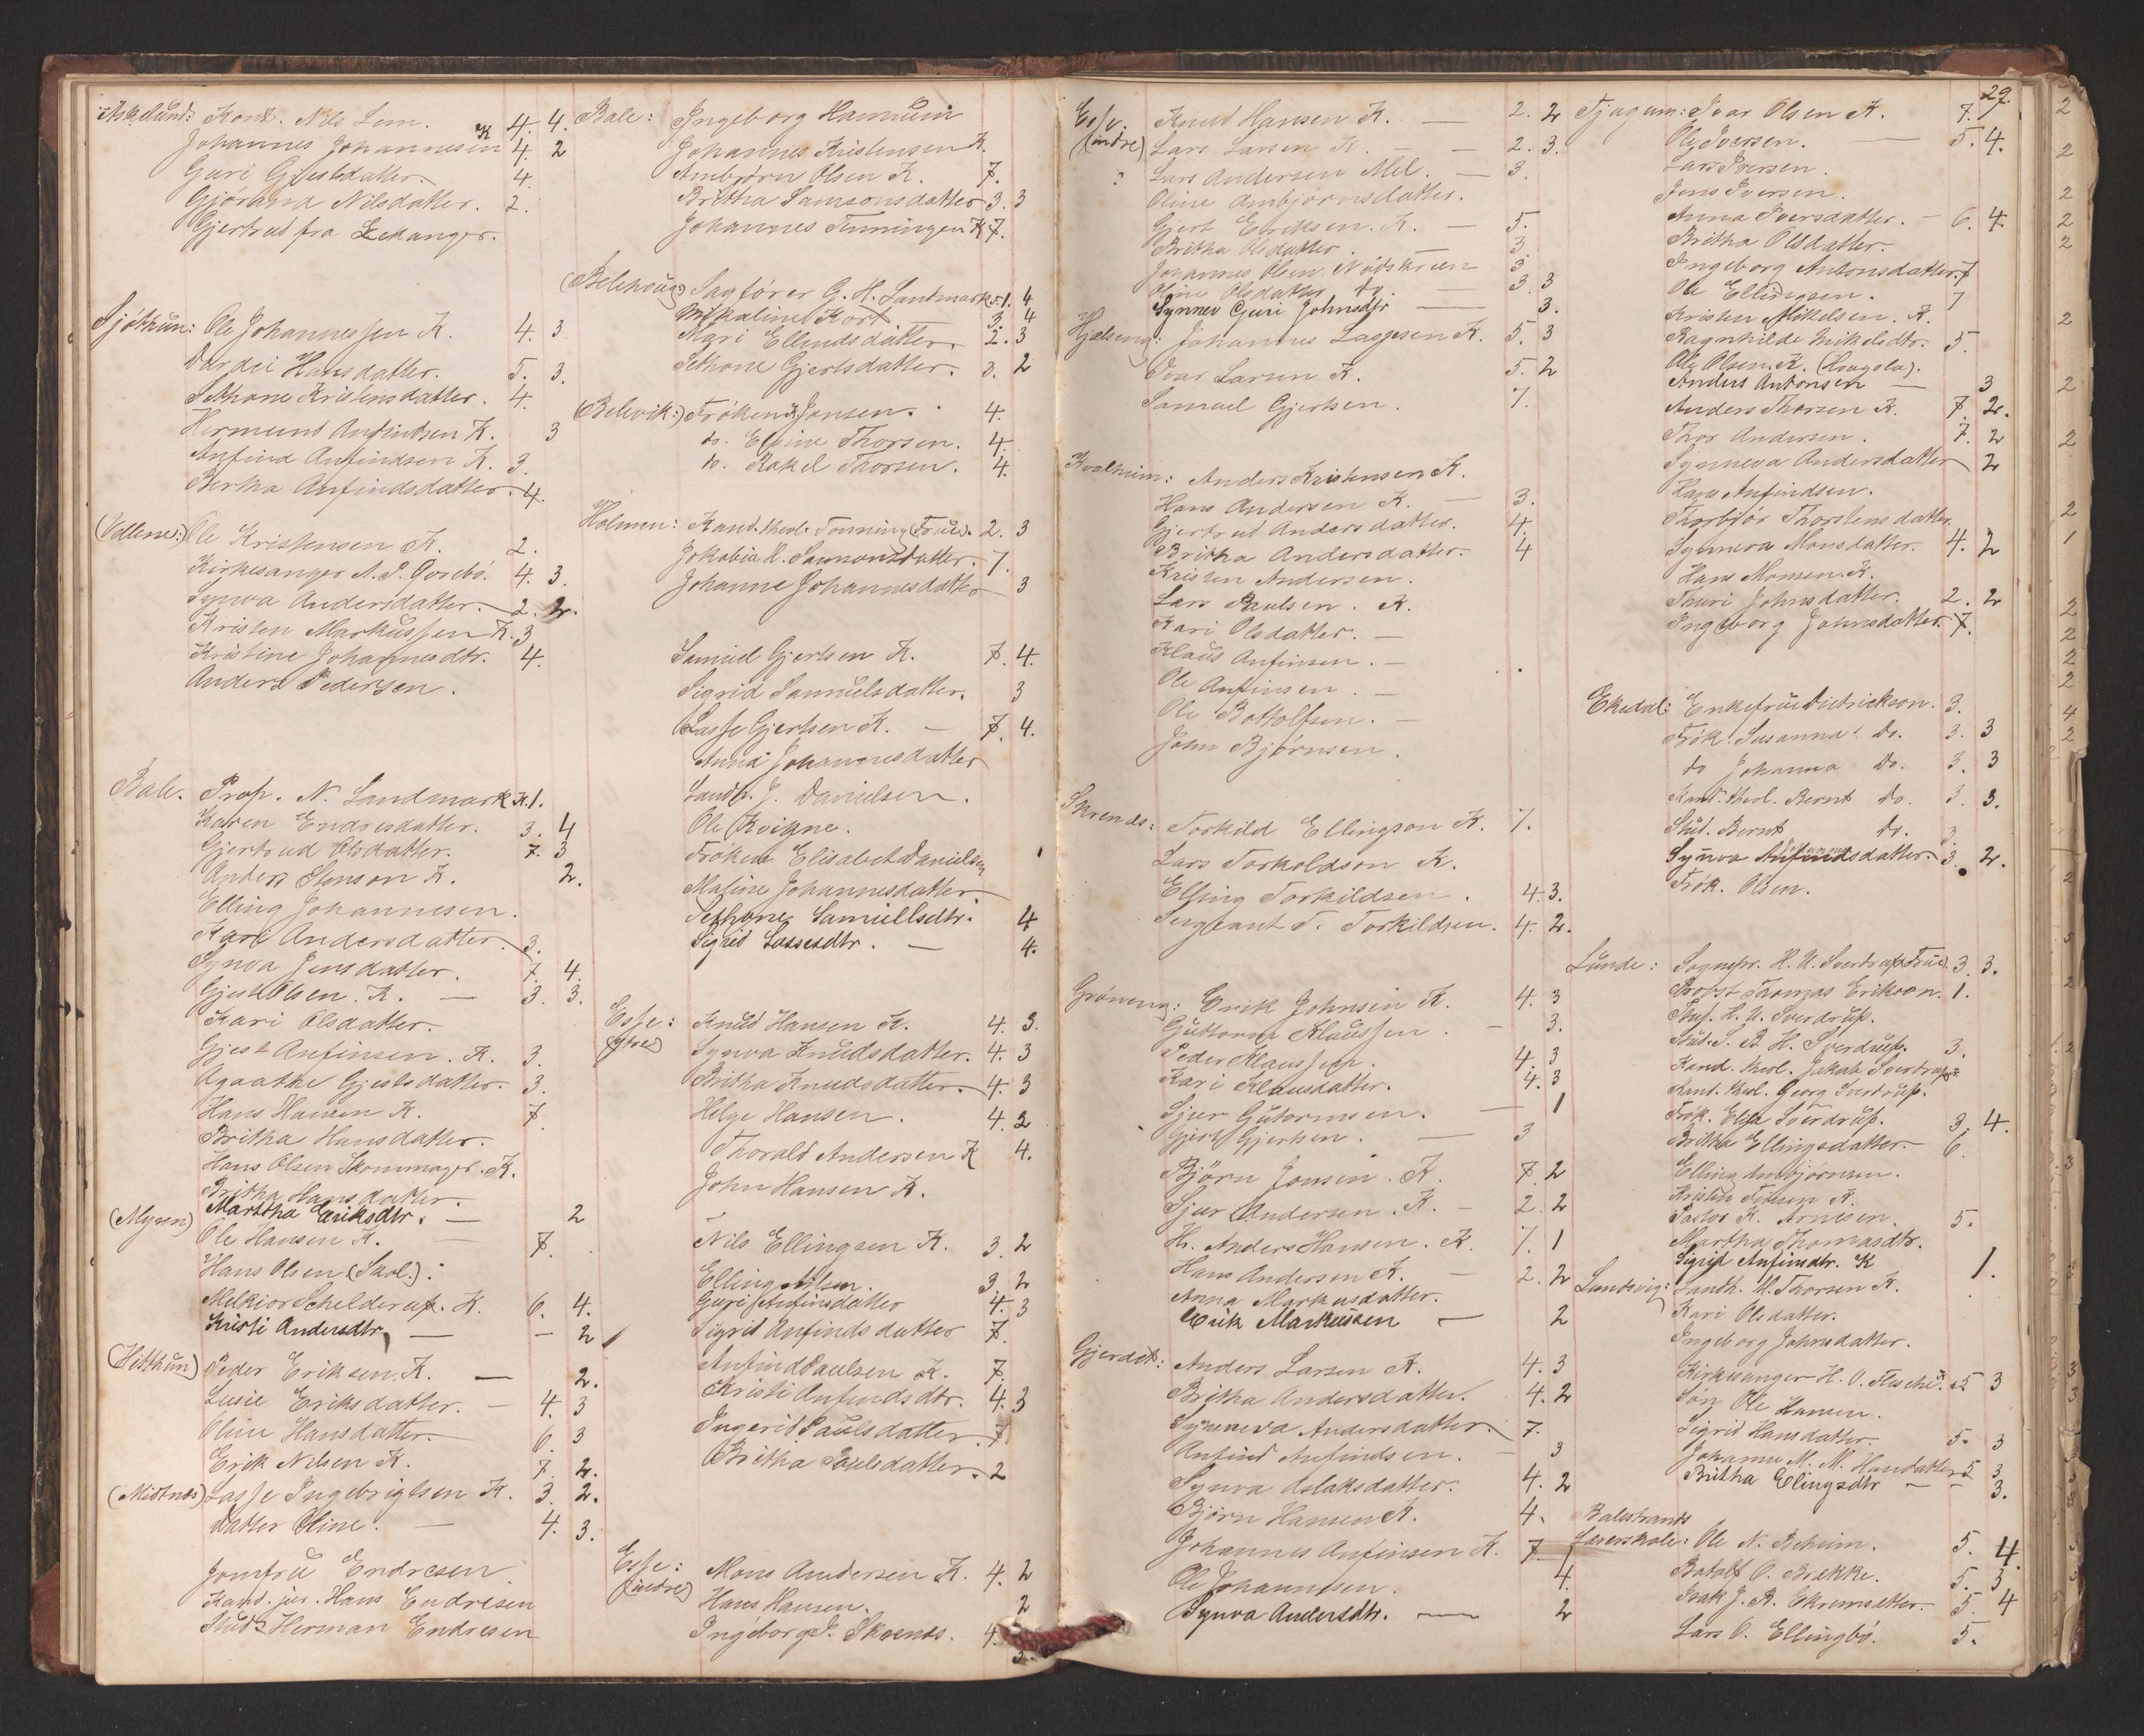 Askelund: Nils Lem. 4. 4.
Johannes Johannesen K 4. 2
Guri Gjestsdatter. 4.
Gjørand Nilsdatter. 2.
Gjertrud fra Lekanger.
Sjøthun: Ole Johannessen K. 4. 3
Dordei Hansdatter. 5. 3.
Sethone Kristensdatter. 4.
Hermund Anfindsen K. 3
Anfind Anfindsen K. 3.
Bertha Anfindsdatter. 4.
(Vellene:) Ole Kristensen K. 2.
Kirkesanger A. P. 4. 3.
Synva Andersdatter. 2. 2.
Kristen Markussen K. 3
Kristine Johannesdtr. 4.
Anders Pedersen.
Bale. Prop. N. Landmark K. 1.
Karen Endresdatter. 3. 4
Gjertrud Olsdatter. 7. 3
Anders Stenson K. 2.
Elling Johannesen.
Kari Andersdatter. 3.
Synva Jensdatter. 7. 4.
Gjest Olsen. K. — 3. 3.
Kari Olsdatter.
Gjest Anfinsen. K. 3.
Agaathe Gjestsdatter. 3.
Hans Hansen K. 7.
Britha Hansdatter.
Hans Olsen Skommager. K.
Britha Hansdatter.
Marttha Eriksdtr. — 2
(Myren) Ole Hansen K. — 7.
Hans Olsen (Skol.).
Melkior Schelderup. K. 6. 4.
Kristi Andersdtr. — — 2
(Hitthun) Peder Eriksen. K. — 2.
Lusie Eriksdatter. — 4. 3
Oline Hansdatter. 6. 3
Erik Nilsen K. 7. 2.
(Midtnæs) Lasse Ingebrigtsen K. 3. 2.
Datter Oline. — 4. 3.
Jomfru Endresen
Kand. jur. Hans Endresen
Stud. Herman Endresen
Bale: Ingeborg Hamrum
Johannes Kristensen K.
Ambjørn Olsen K. 7.
Britha Samsonsdatter 3. 3
Johannes Tenningen K 7.
(Belehoug:) Sagfører G. H. Landmark K. 1. 4
Mikaline Kort — 3. 4
Mari Ellendsdatter. 2. 3
Sethone Gjertsdatter. 3. 2
(Belevik:) Frøken Jansen. 4.
do. Eline Thorsen. 4.
do. Rakel Thorsen. 4.
Holmen: Kand. theol. Tønning (Frue). 2. 3
Jakobia H. Samsonsdatter. 7.
Johanne Johannesdatter 3
Samuel Gjertsen K. 7. 4.
Sigrid Samuelsdatter. 3
Lasse Gjertsen K. — 7. 4.
Anna Johannesdatter
Landh. J. Danielsen.
Ole Kvigne.
Frøken Elisabet Danielsen
Maline Johannesdatter
Sethone Samuelsdtr. 4
Sigrid Lassesdtr. — 4.
Esse: (ytre) Knud Hansen K. 4. 3.
Synva Knudsdatter. 4. 3
Britha Knudsdatter. 4. 3
Helge Hansen. 4. 2
Thorald Andersen K 4.
John Hansen K.
Nils Ellingsen K. 3. 2
Elling Nilsen. 3. 2
Guri Anfinsdatter 4. 3
Sigrid Anfindsdatter 7.
Anfind Paulsen K. 7.
Kristi Anfindsdtr. 4. 3
Ingerid Paulsdatter. 7
Britha Paulsdatter. 2
Esse: (indre) Mons Andersen K. 4. 2
Hans Hansen. 2
Ingeborg J. Skrends. 4.
3.
29.
Esse. (indre) Knud Hansen K. — 2. 2
Lars Larsen K. — — 2. 3.
Lars Andersen Mel. — 3.
Oline Ambjørnsdatter.
Gjert Eriksen. K. — 5.
Britha Olsdatter. — 3
Johannes Olsen 3
Oline Olsdatter do. — 3. 3
Synnev Guri Johnsdtr — 3.
Hjelseng: Johannes Lassesen K. 5. 3
Ivar Larsen K. 5. 2
Samuel Gjertsen. 7.
Kvalheim: Anders Kristensen K.
Hans Andersen K. — 3.
Gjertrud Andersdatter. 4.
Britha Andersdatter. 4
Kristen Andersen.
Lars Paulsen. K.
Kari Olsdatter. —
Klaus Anfinsen. —
Ole Anfinsen. —
Ole Bottolfsen. —
John Bjørnsen.
Skrends: Torkild Ellingson K. 7.
Lars Torkoldson K.
Elling Torkildsen. 4. 3.
Sergeant T. Torkildsen. 4. 2.
Grøneng: Erik Johnsen K. 4. 3
Guttorm Klaussen. — 3.
Peder Klaussen. 4. 3
Kari Klausdatter. 4. 3
Sjur Gutormsen. — 1
Gjert Gjertsen. — 3
Bjørn Jonsen. K. 7. 2
Sjur Andersen. K. — 2. 2
Hr. Anders Hansen. K. 7. 1
Hans Andersen K. — 2. 2
Anna Markusdatter.
Erik Markussen — 2
Gjerdet: Anders Larsen K. 4. 3
Britha Andersdatter. 4. 2
Synneva Andersdatter. 7.
Anfind Anfindsen. — 3
Synva Aslaksdatter. 4. 2
Bjørn Hansen K. 4.
Johannes Anfinsen K. 7
Ole Johannesen. 4.
Synva Andersdtr. — 2
Tjugum: Ivar Olsen K. 7.
Ole Iversen. — 5. 4.
Lars Iversen.
Jens Iversen.
Anna Iversdatter. — 6. 4
Britha Olsdatter.
Ingeborg Antonsdatter. 7
Ole Ellingsen. 7
Kristen Mikkelsen. K.
Ragnhilde Mikelsdtr. 5.
Ole Olsen. K. (Hougslo).
Anders Antonsen — 3
Anders Thorsen K. 7. 2.
Thor Andersen. 7. 2
Synneva Andersdatter 2
Hans Anfindsen.
Thorbjør Thorstensdatter.
Synneva Monsdatter. 4. 2
Hans Monsen. K.
Thuri Johnsdatter. 2. 2
Ingeborg Johnsdatter. 7.
Ekedal: Enkefrue Dietrickson. 3.
Frøk. Susanna Do. 3. 3
do Johanna Do. 3. 3
Kand. theol. Bernt Do. 3. 3.
Stud. Bernt Do. 3.
Synva Anfindsdatter. 3. 2.
Frøk. Olsen.
Lunde: Sognepr. H. U. Sverdrup (Frue). 3. 3.
Provst Thomas Erikson. 1.
H. U. Sverdrup.
Stud. S. B. H. Sverdrup. 3.
Kand. theol. Jakob Sverdrup
Kand. theol. Georg Sverdrup.
Frøk. Elisa Sverdrup. 3. 4.
Britha Ellingsdatter. 6.
Elling Ambjørnsen.
Kristen K.
Pastor K. Arnesen. 5.
Martha Thomasdtr.
Sigrid Anfinsdtr. K 1.
Lundsvig: Landh. M. Thorsen K.
Kari Olsdatter.
Ingeborg Johnsdatter.
Kirkesanger H. O. 5 3
Søn Ole Hansen.
Sigrid Hansdatter. 5. 3
Johanne M. M. Hansdatter 5 3
Britha Elingsdtr — — 3.
Balestrands
Lærerskole: Ole N. Reheim. 5. 4.
Botolf O. Brække. 5. 3
Isak J. R. Ekremsæter. 5. 4
Lars O. Ellingbø. 5.